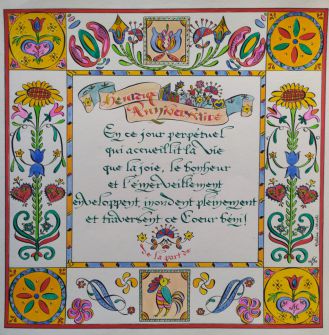 Heureux
Anniversaire
En ce jour perpétuel
qui accueillit la Vie
que la joie, le bonheur
et l'émerveillement
enveloppent inondent pleinement
et traversent ce Coeur béni!
de la part de